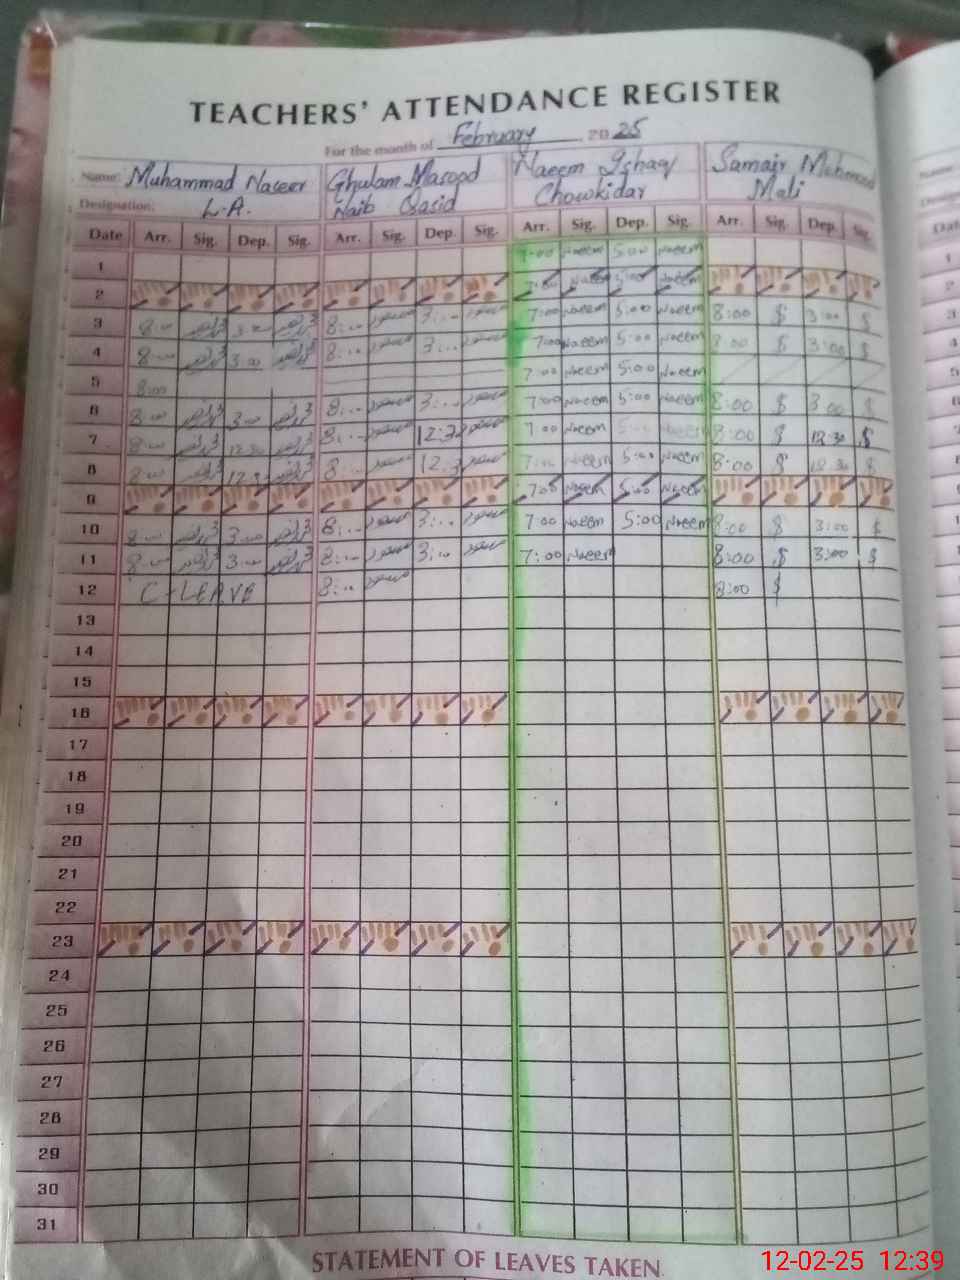 TEACHERS' ATTENDANCE REGISTER
For the month of February 2025
Name: Muhammad Naseer Ghulam Masood Naeem Ishaq Samair Mehmood
Designation: L.A. Naib Qasid Chowkidar Mali
Date Arr. Sig. Dep. Sig. Arr. Sig. Dep. Sig. Arr. Sig. Dep. Sig. Arr. Sig. Dep. Sig.
1 7:00 Naeem 5:00 Naeem
2 7:00 Naeem 5:00 Naeem
3 8:00 3:00 8:.. مسعود 3:.. مسعود 7:00 Naeem 5:00 Naeem 8:00 $ 3:00 $
4 8:00 3:00 8:.. مسعود 3:.. مسعود 7:00 Naeem 5:00 Naeem 8:00 $ 3:00 $
5 8:00 7:00 Naeem 5:00 Naeem
6 8:00 3:00 8:.. مسعود 3:.. مسعود 7:00 Naeem 5:00 Naeem 8:00 $ 3:00 $
7 8:00 12:30 8:.. مسعود 12:3 مسعود 7:00 Naeem 5:00 Naeem 8:00 $ 12:30 $
8 8:00 12:3 8:.. مسعود 12:3 مسعود 7:00 Naeem 5:00 Naeem 8:00 $ 12:30 $
9 7:00 Naeem 5:00 Naeem
10 8:00 3:00 8:.. مسعود 3:.. مسعود 7:00 Naeem 5:00 Naeem 8:00 $ 3:00 $
11 8:00 3:00 8:.. مسعود 3:.. مسعود 7:00 Naeem 8:00 $ 3:00 $
12 C-LEAVE 8:.. مسعود 8:00 $
13
14
15
16
17
18
19
20
21
22
23
24
25
26
27
28
29
30
31
STATEMENT OF LEAVES TAKEN
12-02-25 12:39